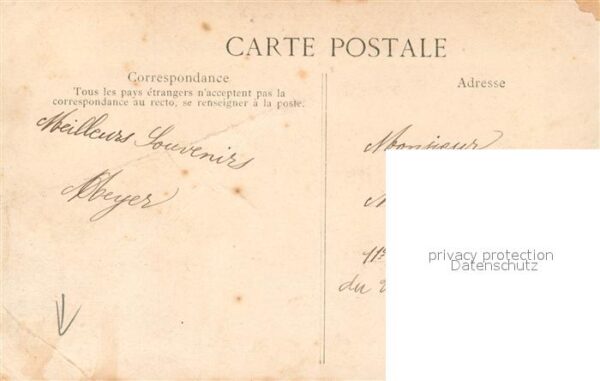 CARTE POSTALE
Correspondance
Tous les pays étrangers n'acceptent pas la
correspondance au recto, se renseigner à la poste.
Adresse
Meilleurs Souvenirs
Meyer
Monsieur
M
11e
du
privacy protection
Datenschutz